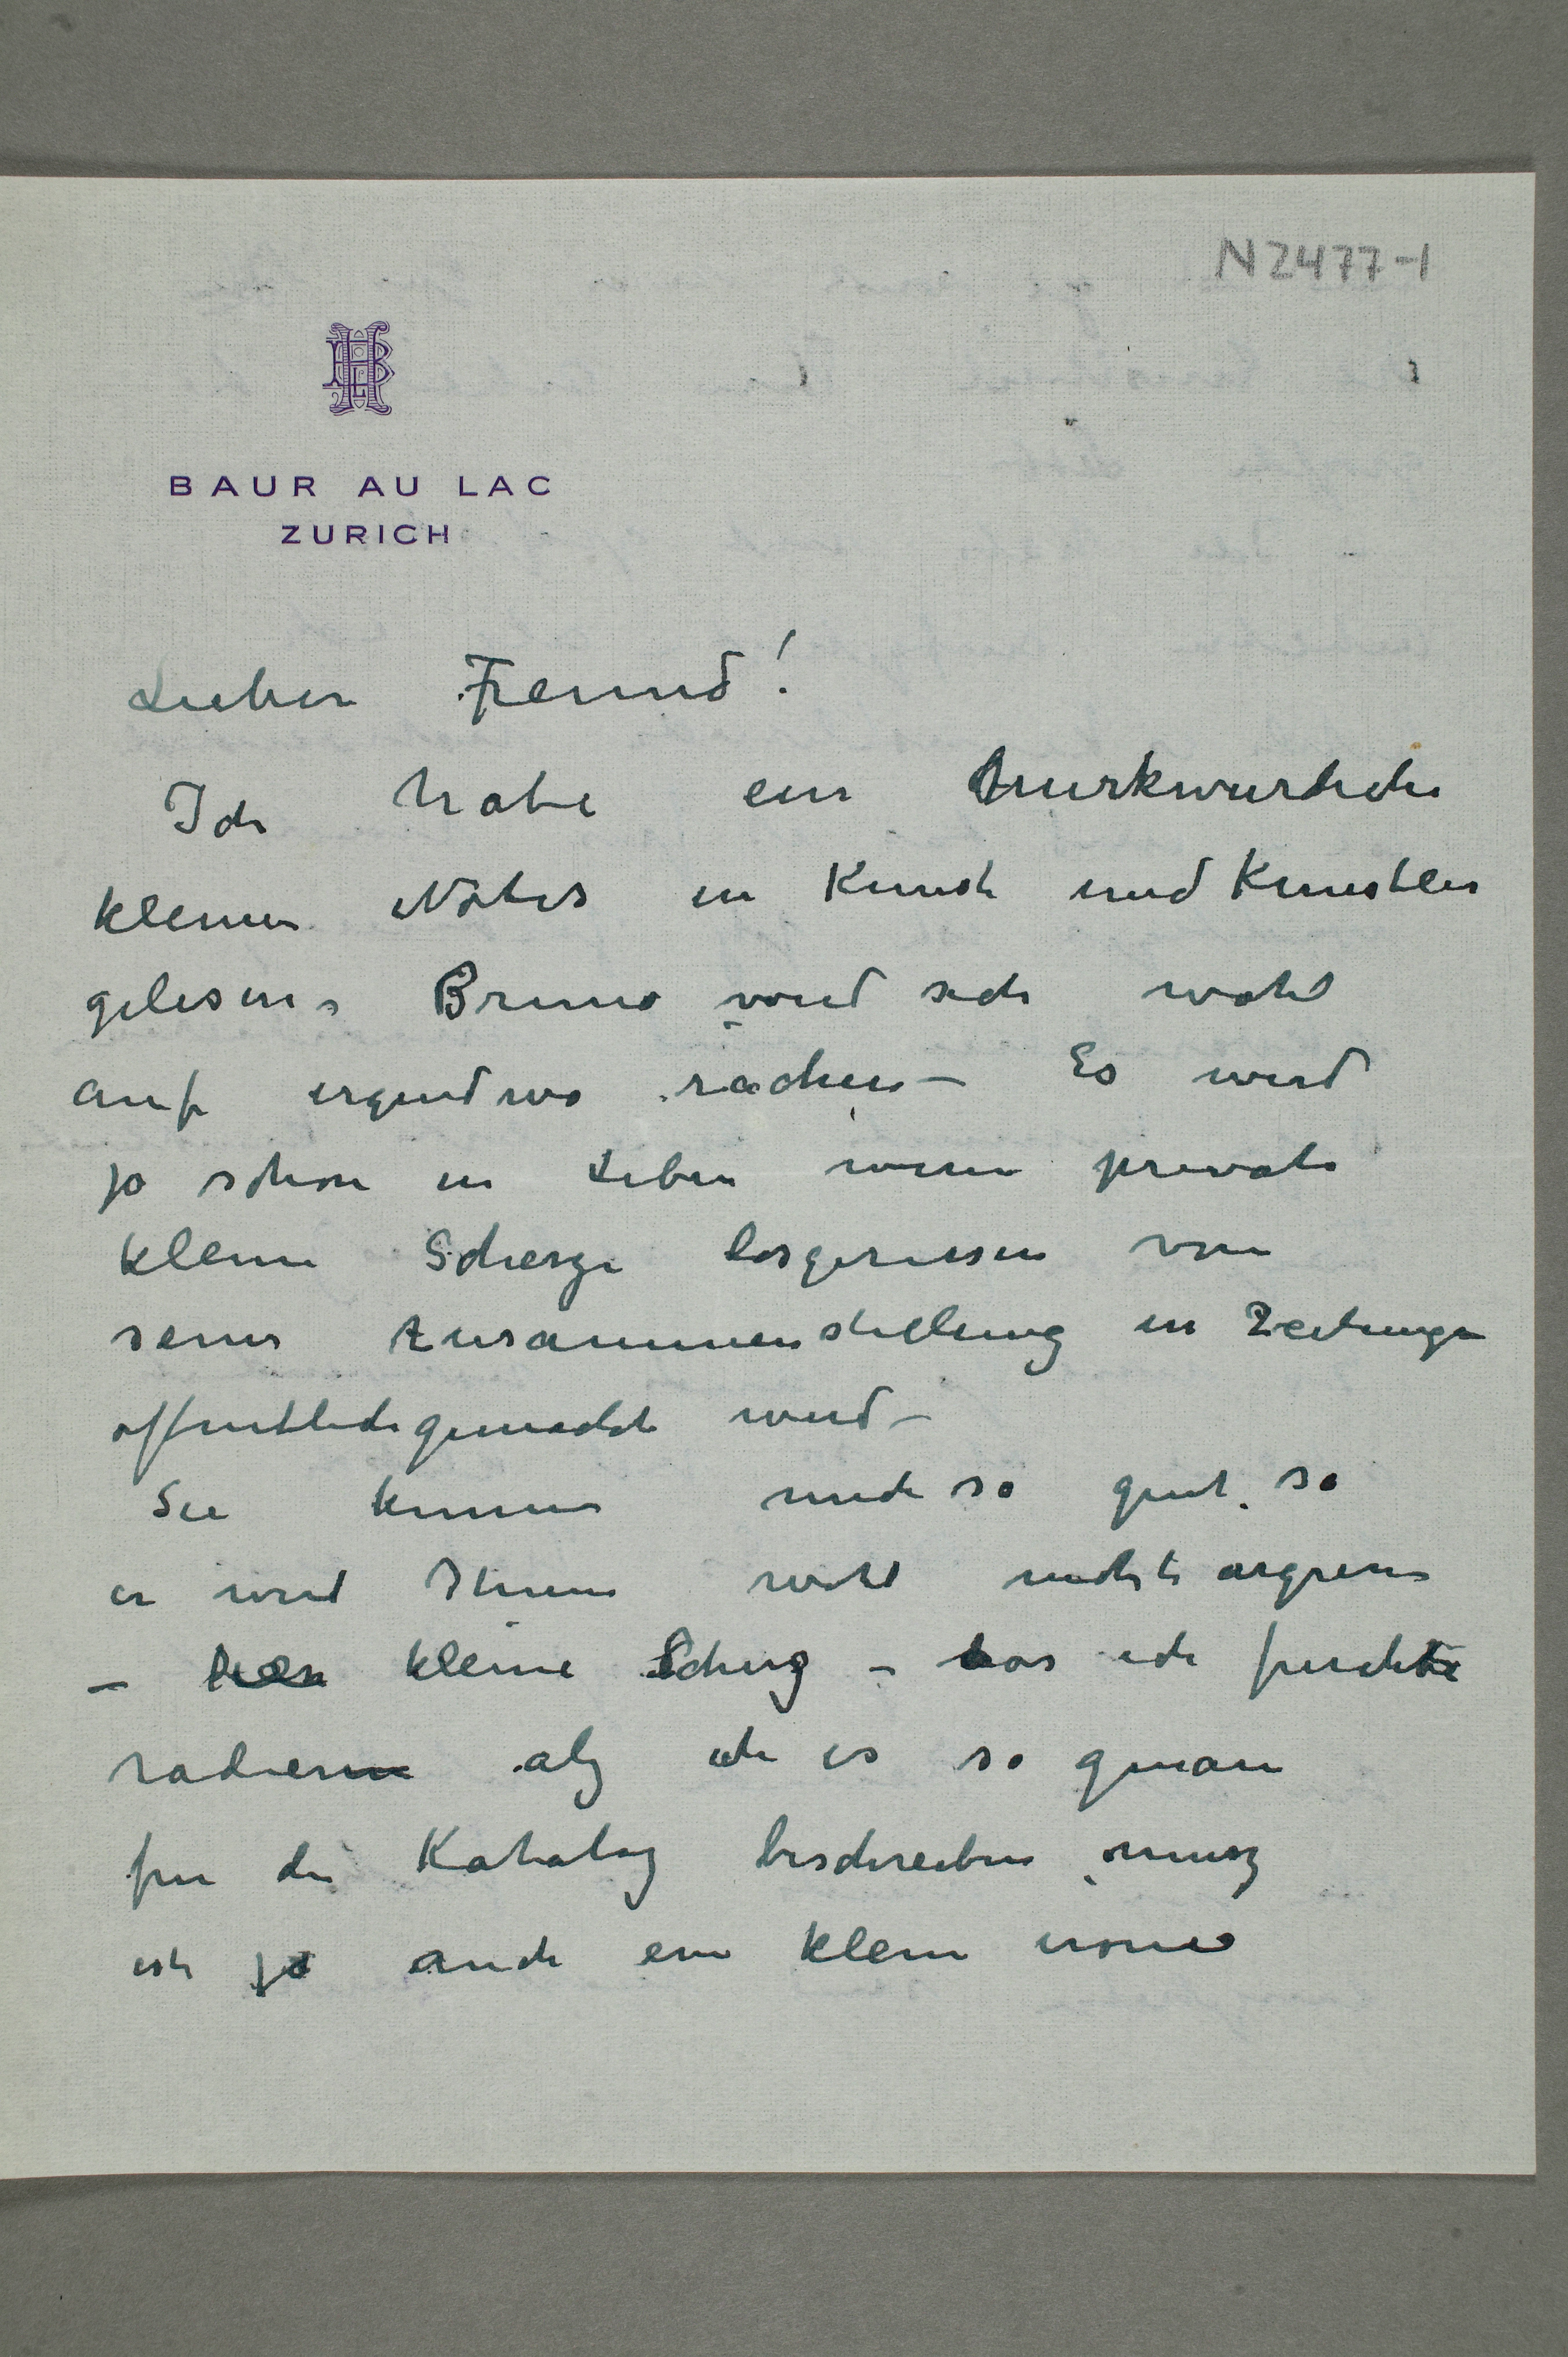 N 2477-1
HBL
BAUR AU LAC
ZURICH
Lieber Freund!
Ich habe ein merkwurdiche
kleinen Notis in Kunst und Kunstler
gelesen, Bruno wird sich wohl
auf irgendwo rächen – Es wird
ja schon in Leben wenn private
kleine Scherze losgerissen von
seiner Zusammenstellung in Zeitungen
offentlich gemacht wird –
Sie kennen mich so gut, so
er wird Ihnen wohl nichts argeren
– kleine Scherz – das ich furchte
radieren alz ich es so genau
fur die Katalog beschreiben musz
ist ja auch ein klein ironie